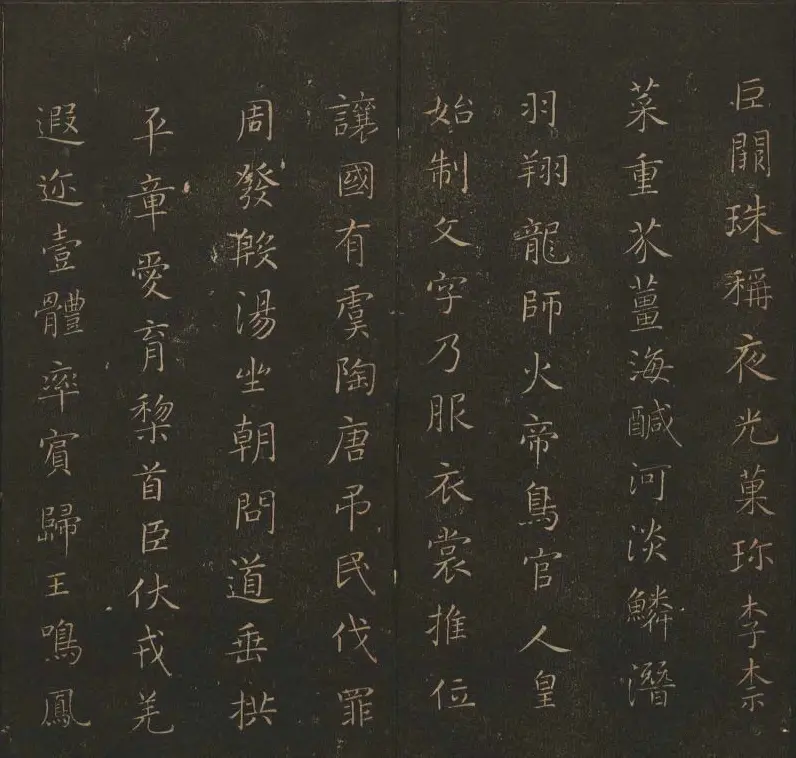 巨闕珠稱夜光菓珎李柰
菜重芥薑海醎河淡鱗潛
羽翔龍師火帝鳥官人皇
始制文字乃服衣裳推位
讓國有虞陶唐弔民伐罪
周發殷湯坐朝問道垂拱
平章愛育黎首臣伏戎羌
遐迩壹體率賓歸王鳴鳳